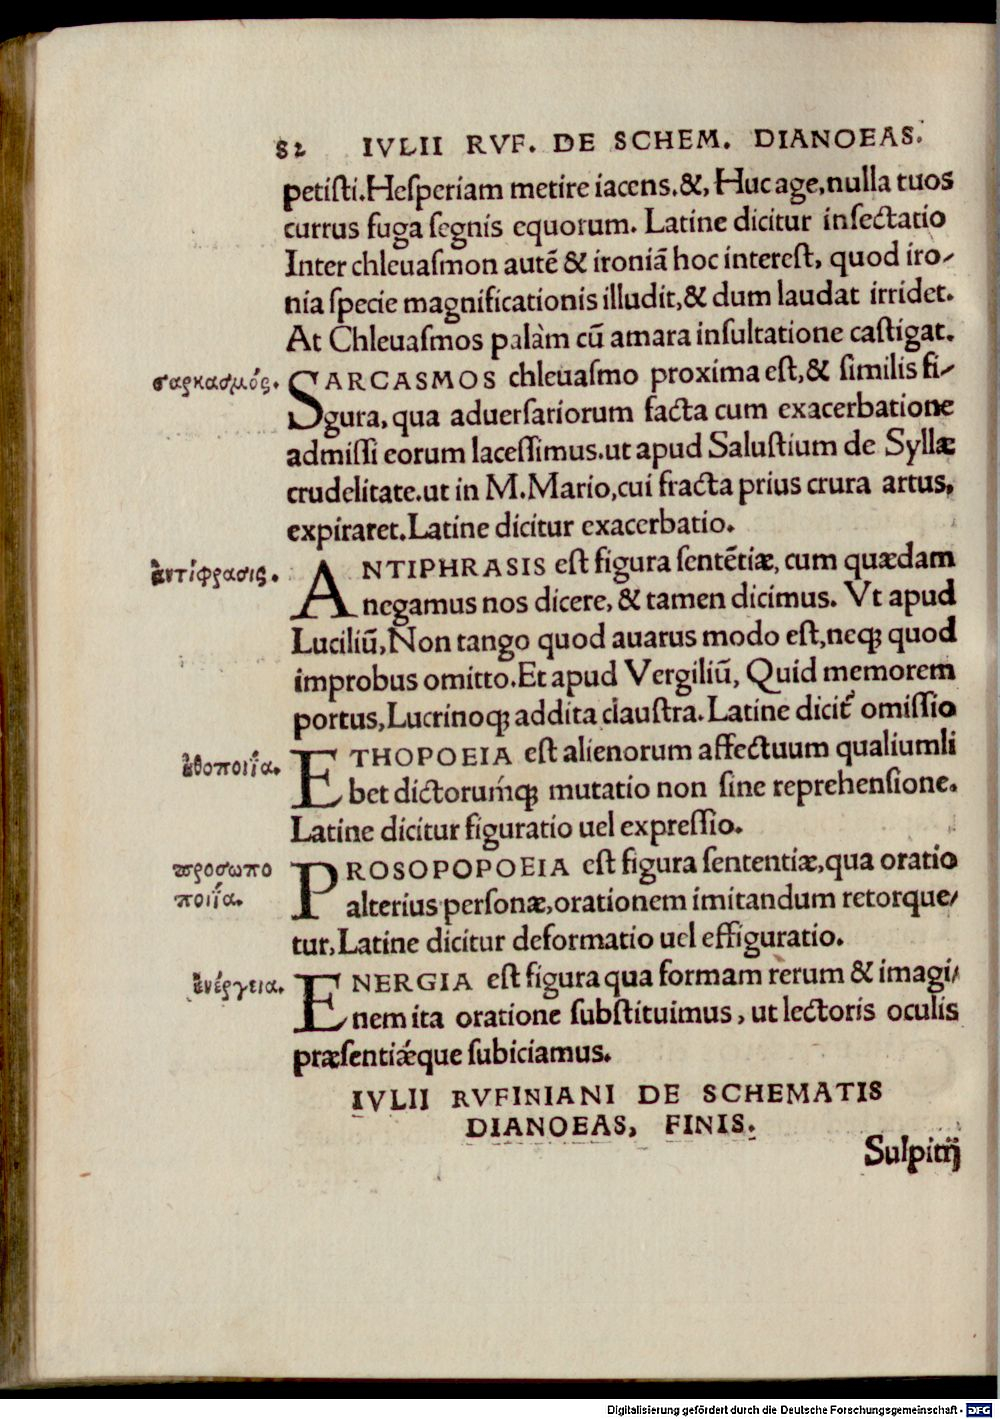 82 IVLII RVF. DE SCHEM. DIANOEAS.
petiſti.Heſperiam metire iacens.&, Huc age,nulla tuos
currus fuga ſegnis equorum. Latine dicitur inſectatio
Inter chleuaſmon autē & ironiā hoc intereſt, quod iro-
nia ſpecie magnificationis illudit,& dum laudat irridet.
At Chleuaſmos palàm cū amara inſultatione caſtigat.
σαρκασμός.
SARCASMOS chleuaſmo proxima eſt,& ſimilis fi-
gura, qua aduerſariorum facta cum exacerbatione
admiſſi eorum laceſſimus.ut apud Saluſtium de Syllæ
crudelitate.ut in M.Mario,cui fracta prius crura artus,
expiraret.Latine dicitur exacerbatio.
ἀντίφρασις.
ANTIPHRASIS eſt figura ſentētiæ, cum quædam
negamus nos dicere, & tamen dicimus. Vt apud
Luciliū,Non tango quod auarus modo eſt,neqꝫ quod
improbus omitto.Et apud Vergiliū, Quid memorem
portus,Lucrinoqꝫ addita clauſtra.Latine dicit᷑ omiſſio
ἠθοποιΐα.
ETHOPOEIA eſt alienorum affectuum qualiumli
bet dictoruḿqꝫ mutatio non ſine reprehenſione.
Latine dicitur figuratio uel expreſſio.
προσωπο
ποιΐα.
PROSOPOPOEIA eſt figura ſententiæ,qua oratio
alterius perſonæ,orationem imitandum retorque-
tur,Latine dicitur deformatio uel effiguratio.
ἐνέργεια.
ENERGIA eſt figura qua formam rerum & imagi-
nem ita oratione ſubſtituimus, ut lectoris oculis
præſentiǽque ſubiciamus.
IVLII RVFINIANI DE SCHEMATIS
DIANOEAS, FINIS.
Sulpitij
Digitalisierung gefördert durch die Deutsche Forschungsgemeinschaft - DFG